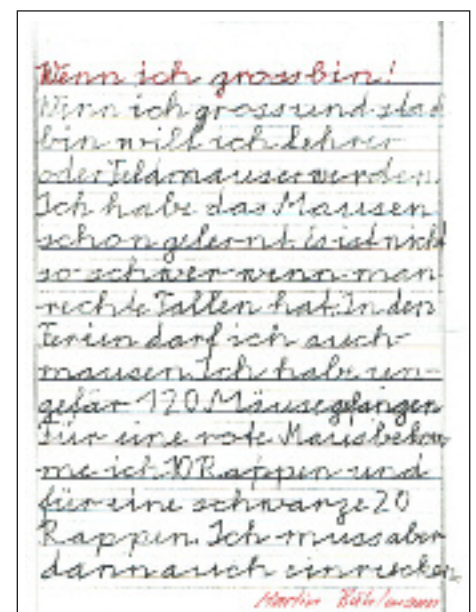 Wenn ich gross bin!
Wenn ich gross und
bin will ich Lehrer
oder Feldmauser werden.
Ich habe das Mausen
schon gelernt. Es ist nicht
so schwer wenn man
rechte Fallen hat. In den
Ferien darf ich auch
mausen. Ich habe un-
gefär 120 Mäuse gefangen
Für eine rote Maus bekom
me ich 10 Rappen und
für eine schwarze 20
Rappen. Ich muss aber
dann auch einrücken.
Martin